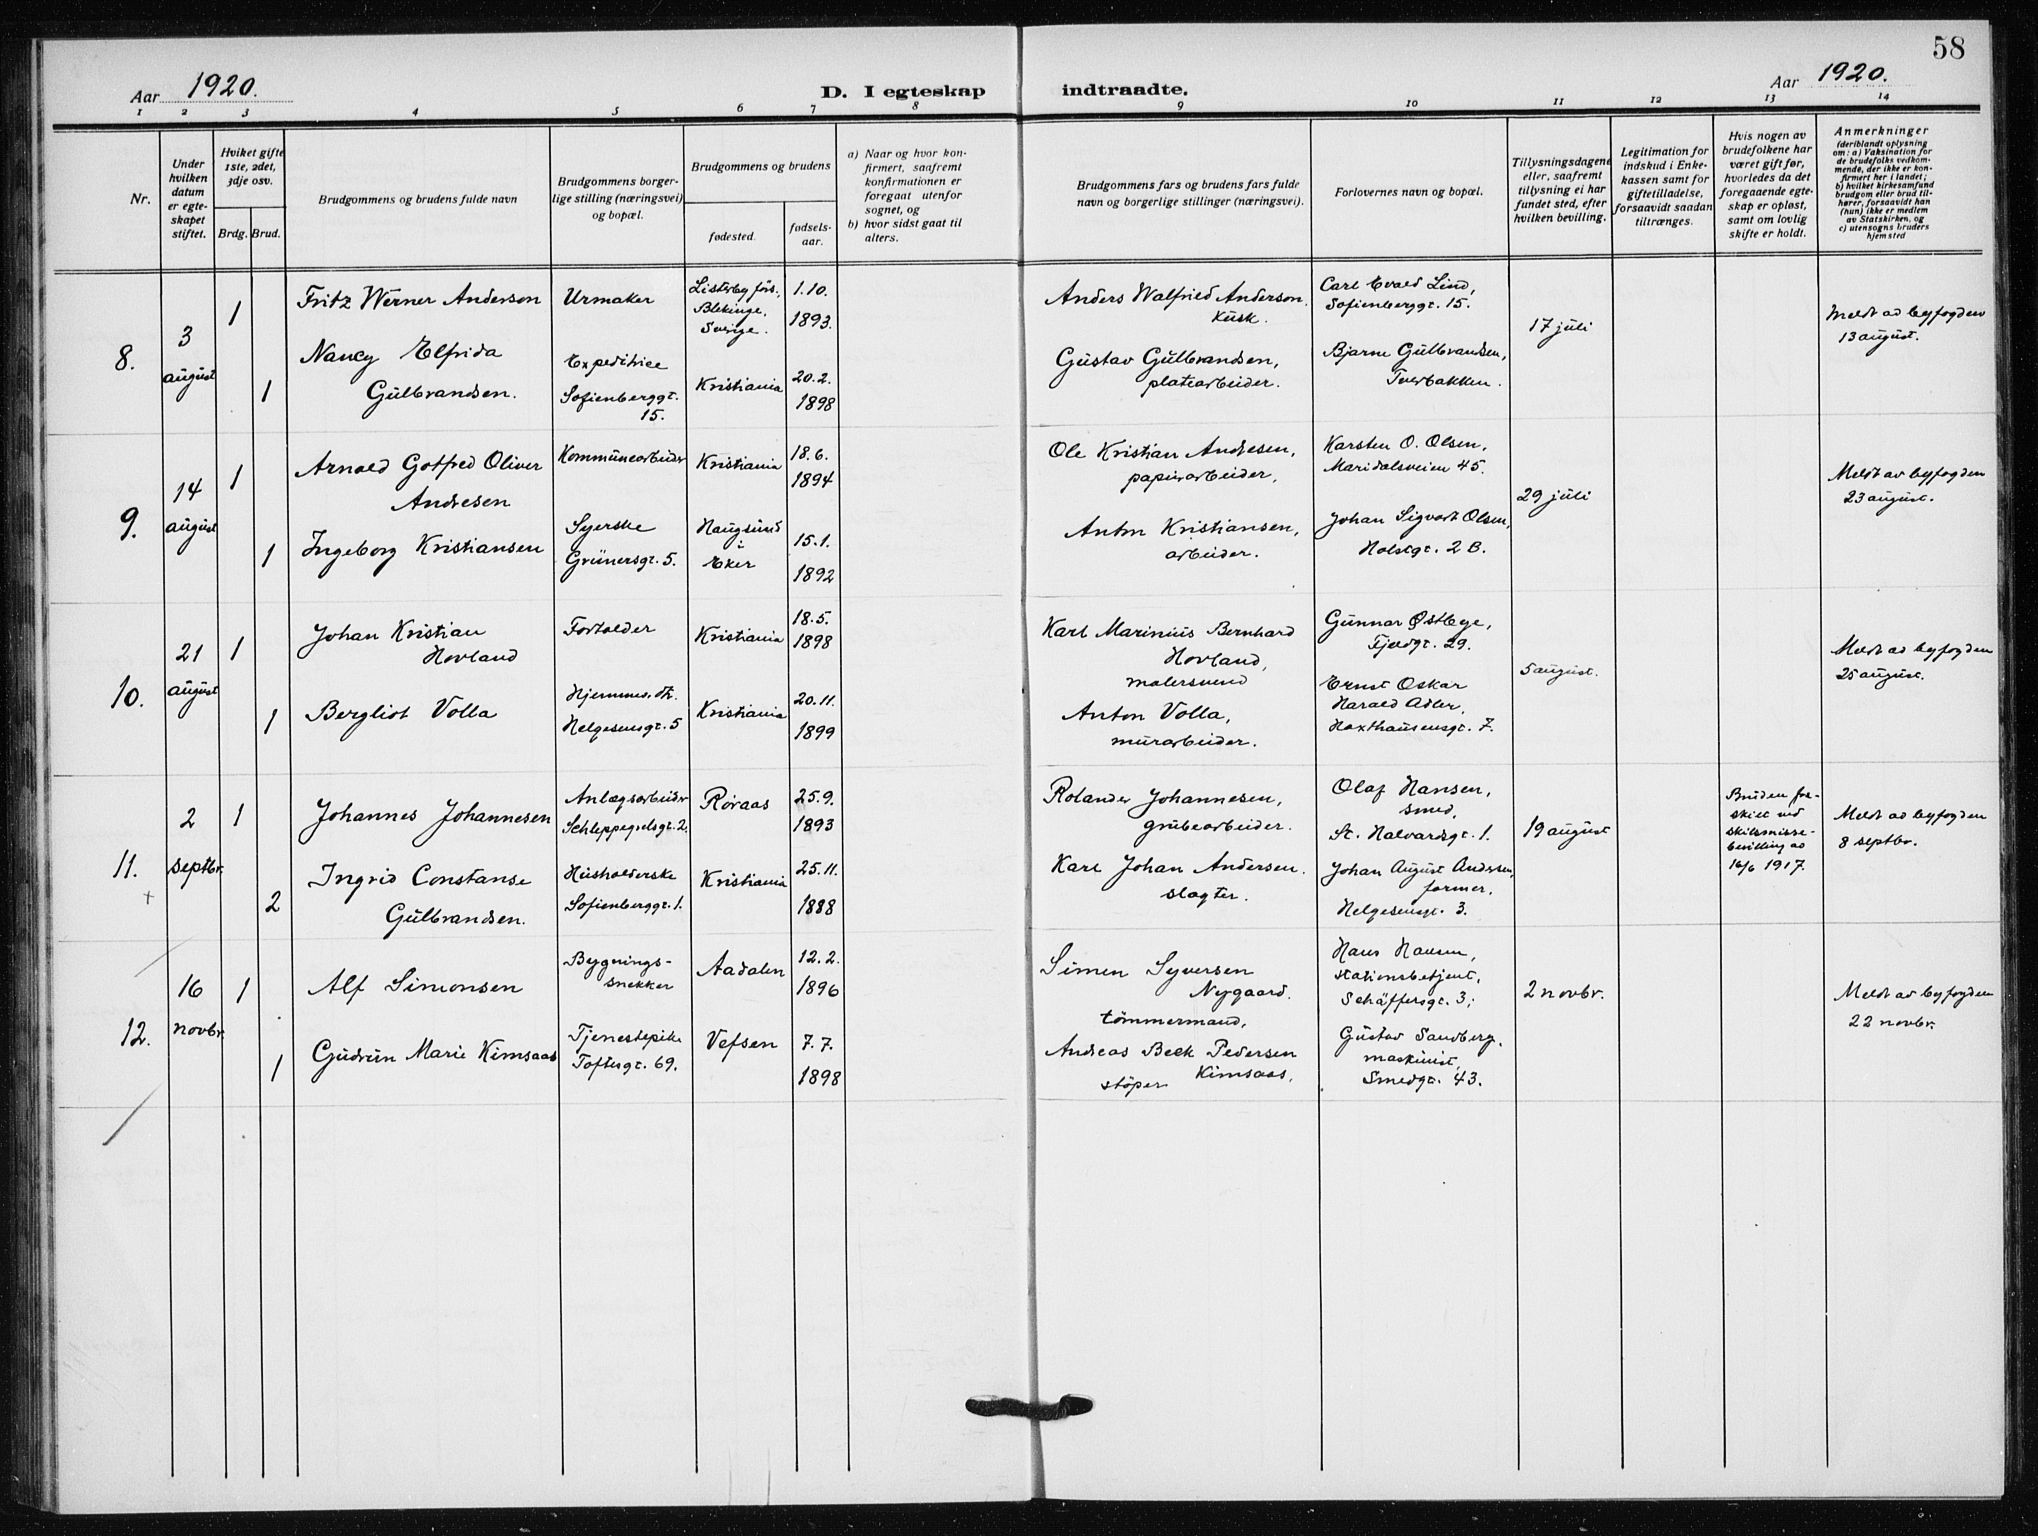 58
Aar 1920.
D. I egteskap indtraadte.
Aar 1920.
1 2 3 4 5 6 7 8 9 10 11 12 13 14
Nr.
Under hvilken datum er egteskapet stiftet.
Hviket gifte 1ste, 2det, 3dje osv.
Brdg. Brud.
Brudgommens og brudens fulde navn
Brudgommens borgerlige stilling (næringsvei) og bopæl.
Brudgommens og brudens
fødested.
fødselsaar.
a) Naar og hvor konfirmert, saafremt konfirmationen er foregaat utenfor sognet, og
b) hvor sidst gaat til alters.
Brudgommens fars og brudens fars fulde navn og borgerlige stillinger (næringsvei).
Forlovernes navn og bopæl.
Tillysningsdagene eller, saafremt tillysning ei har fundet sted, efter hvilken bevilling.
Legitimation for indskud i Enkekassen samt for giftetilladelse, forsaavidt saadan tiltrænges.
Hvis nogen av brudefolkene har været gift før, hvorledes da det foregaaende egteskap er opløst, samt om lovlig skifte er holdt.
Anmerkninger
(deriblandt oplysning om: a) Vaksination for de brudefolks vedkommende, der ikke er konfirmert her i landet; b) hvilket kirkesamfund brudgom eller brud tilhører, forsaavidt han (hun) ikke er medlem av Statskirken, og c) utensogns bruders hjemsted
8.
3 august
1
Fritz Werner Anderson
Urmaker
Listerby förs., Blekinge, Sverige.
1.10. 1893.
Anders Walfried Anderson, kusk.
Carl Evald Lind, Sofienberggt. 15.
17 juli
Meldt av byfogden 13 august.
1
Nancy Elfrida Gulbrandsen.
Expeditrice Sofienberggt. 15.
Kristiania
20.2. 1898
Gustav Gulbrandsen, platearbeider.
Bjarne Gulbrandsen, Tverbakken.
9.
14 august
1
Arnold Gotfred Oliver Andresen
Kommunearbeider
Kristiania
18.6. 1894
Ole Kristian Andresen, papirarbeider,
Karsten O. Olsen, Maridalsveien 45.
29 juli
Meldt av byfogden 23 august.
1
Ingeborg Kristiansen
Syerske Grünersgt. 5.
Haugsund i Eker
15.1. 1892
Anton Kristiansen, arbeider.
Johan Sigvart Olsen, Holstgt. 2 B.
10.
21 august
1
Johan Kristian Hovland
Fortolder
Kristiania
18.5. 1898
Karl Marinius Bernhard Hovland, malersvend
Gunnar Østbye, Fjeldgt. 29.
5 august.
Meldt av byfogden 25 august.
1
Bergliot Volla
Hjemmev. dt. Helgesensgt. 5
Kristiania
20.11. 1899
Anton Volla, murarbeider.
Ernst Oskar Harald Adler, Haxthausensgt. 7.
11.
2 septbr.
1
Johannes Johannesen
Anlægsarbeider Schleppegrelsgt. 2.
Røraas
25.9. 1893
Rolander Johannesen, grubearbeider.
Olaf Hansen, smed, St. Halvardsgt. 1.
19 august
Bruden fraskilt ved skilsmissebevilling av 16/6 1917.
Meldt av byfogden 8 septbr.
2
Ingrid Constanse Gulbrandsen.
Husholderske Sofienberggt. 1.
Kristiania
25.11. 1888
Karl Johan Andersen. slagter.
Johan August Andersen, former, Helgesensgt. 3.
12.
16 novbr.
1
Alf Simonsen
Bygningssnekker
Aadalen
12.2. 1896
Simen Syversen Nygaard. tømmermand,
Hans Hansen, stationsbetjent, Schäffersgt. 3;
2 novbr.
Meldt av byfogden 22 novbr.
1
Gudrun Marie Kimsaas
Tjenestepike Toftesgt. 69.
Vefsen
7.7. 1898
Andreas Beck Pedersen Kimsaas, støper
Gustav Sandberg, maskinist, Smedgt. 43.